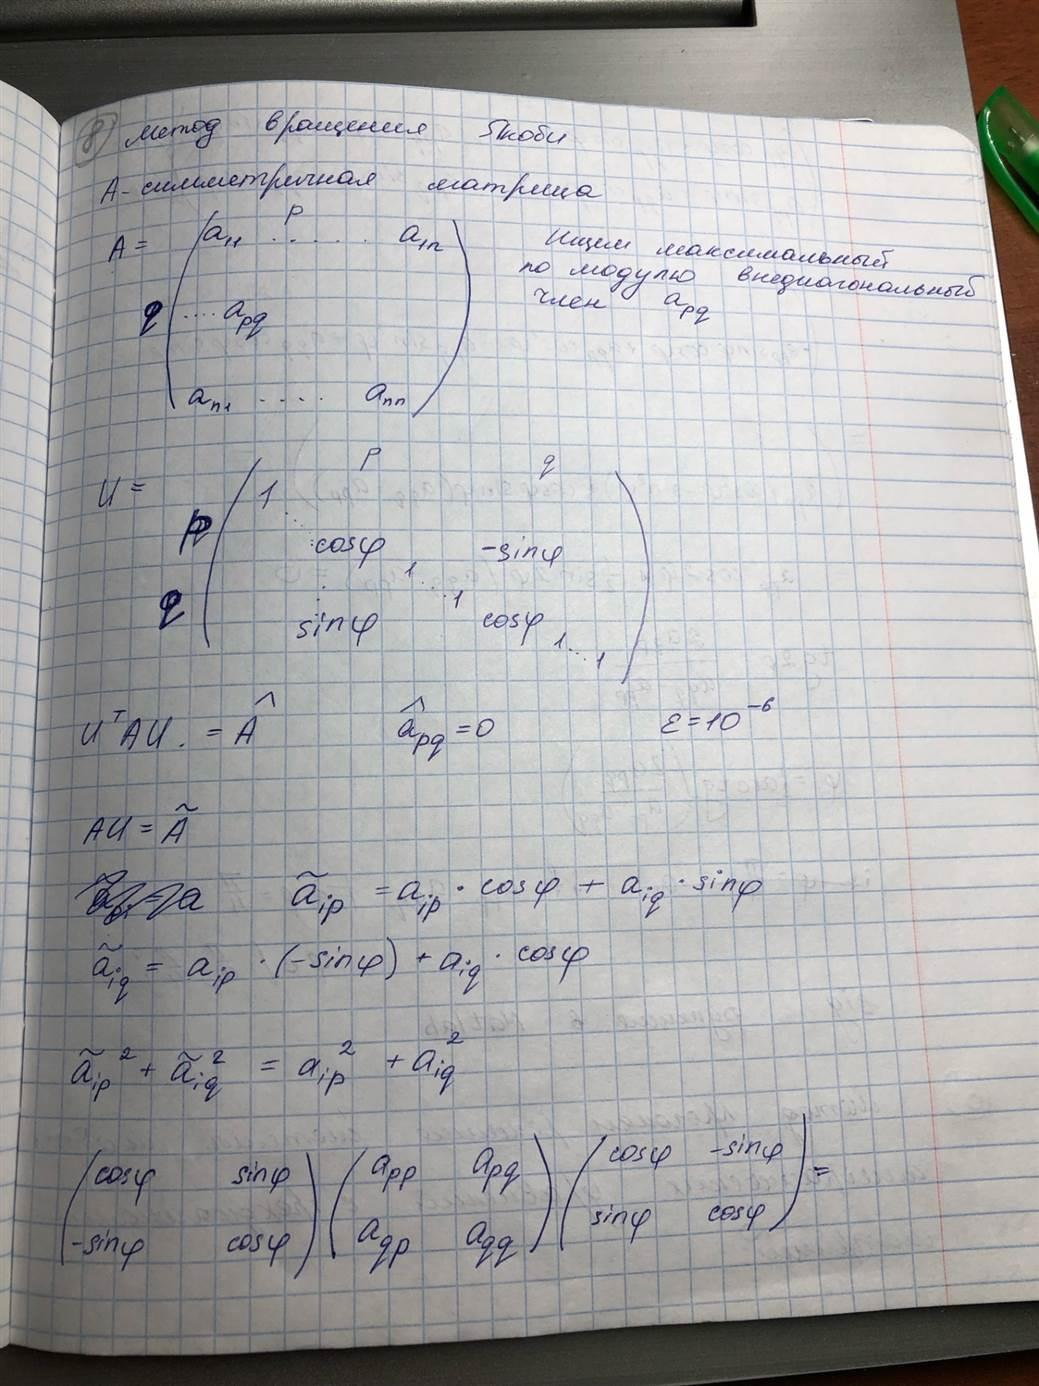 8) метод вращения Якоби
A - симметричная матрица
p
A = ( a₁₁ . . . . . a₁ₙ
q .... a_pq
aₙ₁ . . . . aₙₙ )
Ищем максимальный
по модулю внедиагональный
член a_pq
p q
U = ( 1
p cosφ -sinφ
1 ... 1
q sinφ cosφ
1 ... 1 )
UᵀAU. = Â â_pq = 0 ε = 10⁻⁶
AU = Ã
ã_ip = a_ip · cosφ + a_iq · sinφ
ã_iq = a_ip · (-sinφ) + a_iq · cosφ
ã_ip² + ã_iq² = a_ip² + a_iq²
( cosφ sinφ ) ( a_pp a_pq ) ( cosφ -sinφ ) =
( -sinφ cosφ ) ( a_qp a_qq ) ( sinφ cosφ )